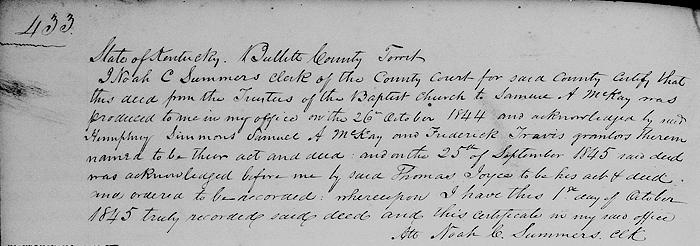 433.
State of Kentucky. Bullitt County Towit
I Noah C Summers clerk of the County Court for said County certify that
this deed from the Trustees of the Baptist Church to Samuel A McKay was
produced to me in my office on the 26th October 1844 and acknowledged by said
Humphrey Simmons Samuel A McKay and Frederick Travis grantors therein
named to be their act and deed: and on the 25th of September 1845 said deed
was acknowledged before me by said Thomas Joyce to be his act & deed.
and ordered to be recorded: whereupon I have this 1st day of October
1845 truly recorded said deed and this certificate in my said office
Att Noah C. Summers, clk